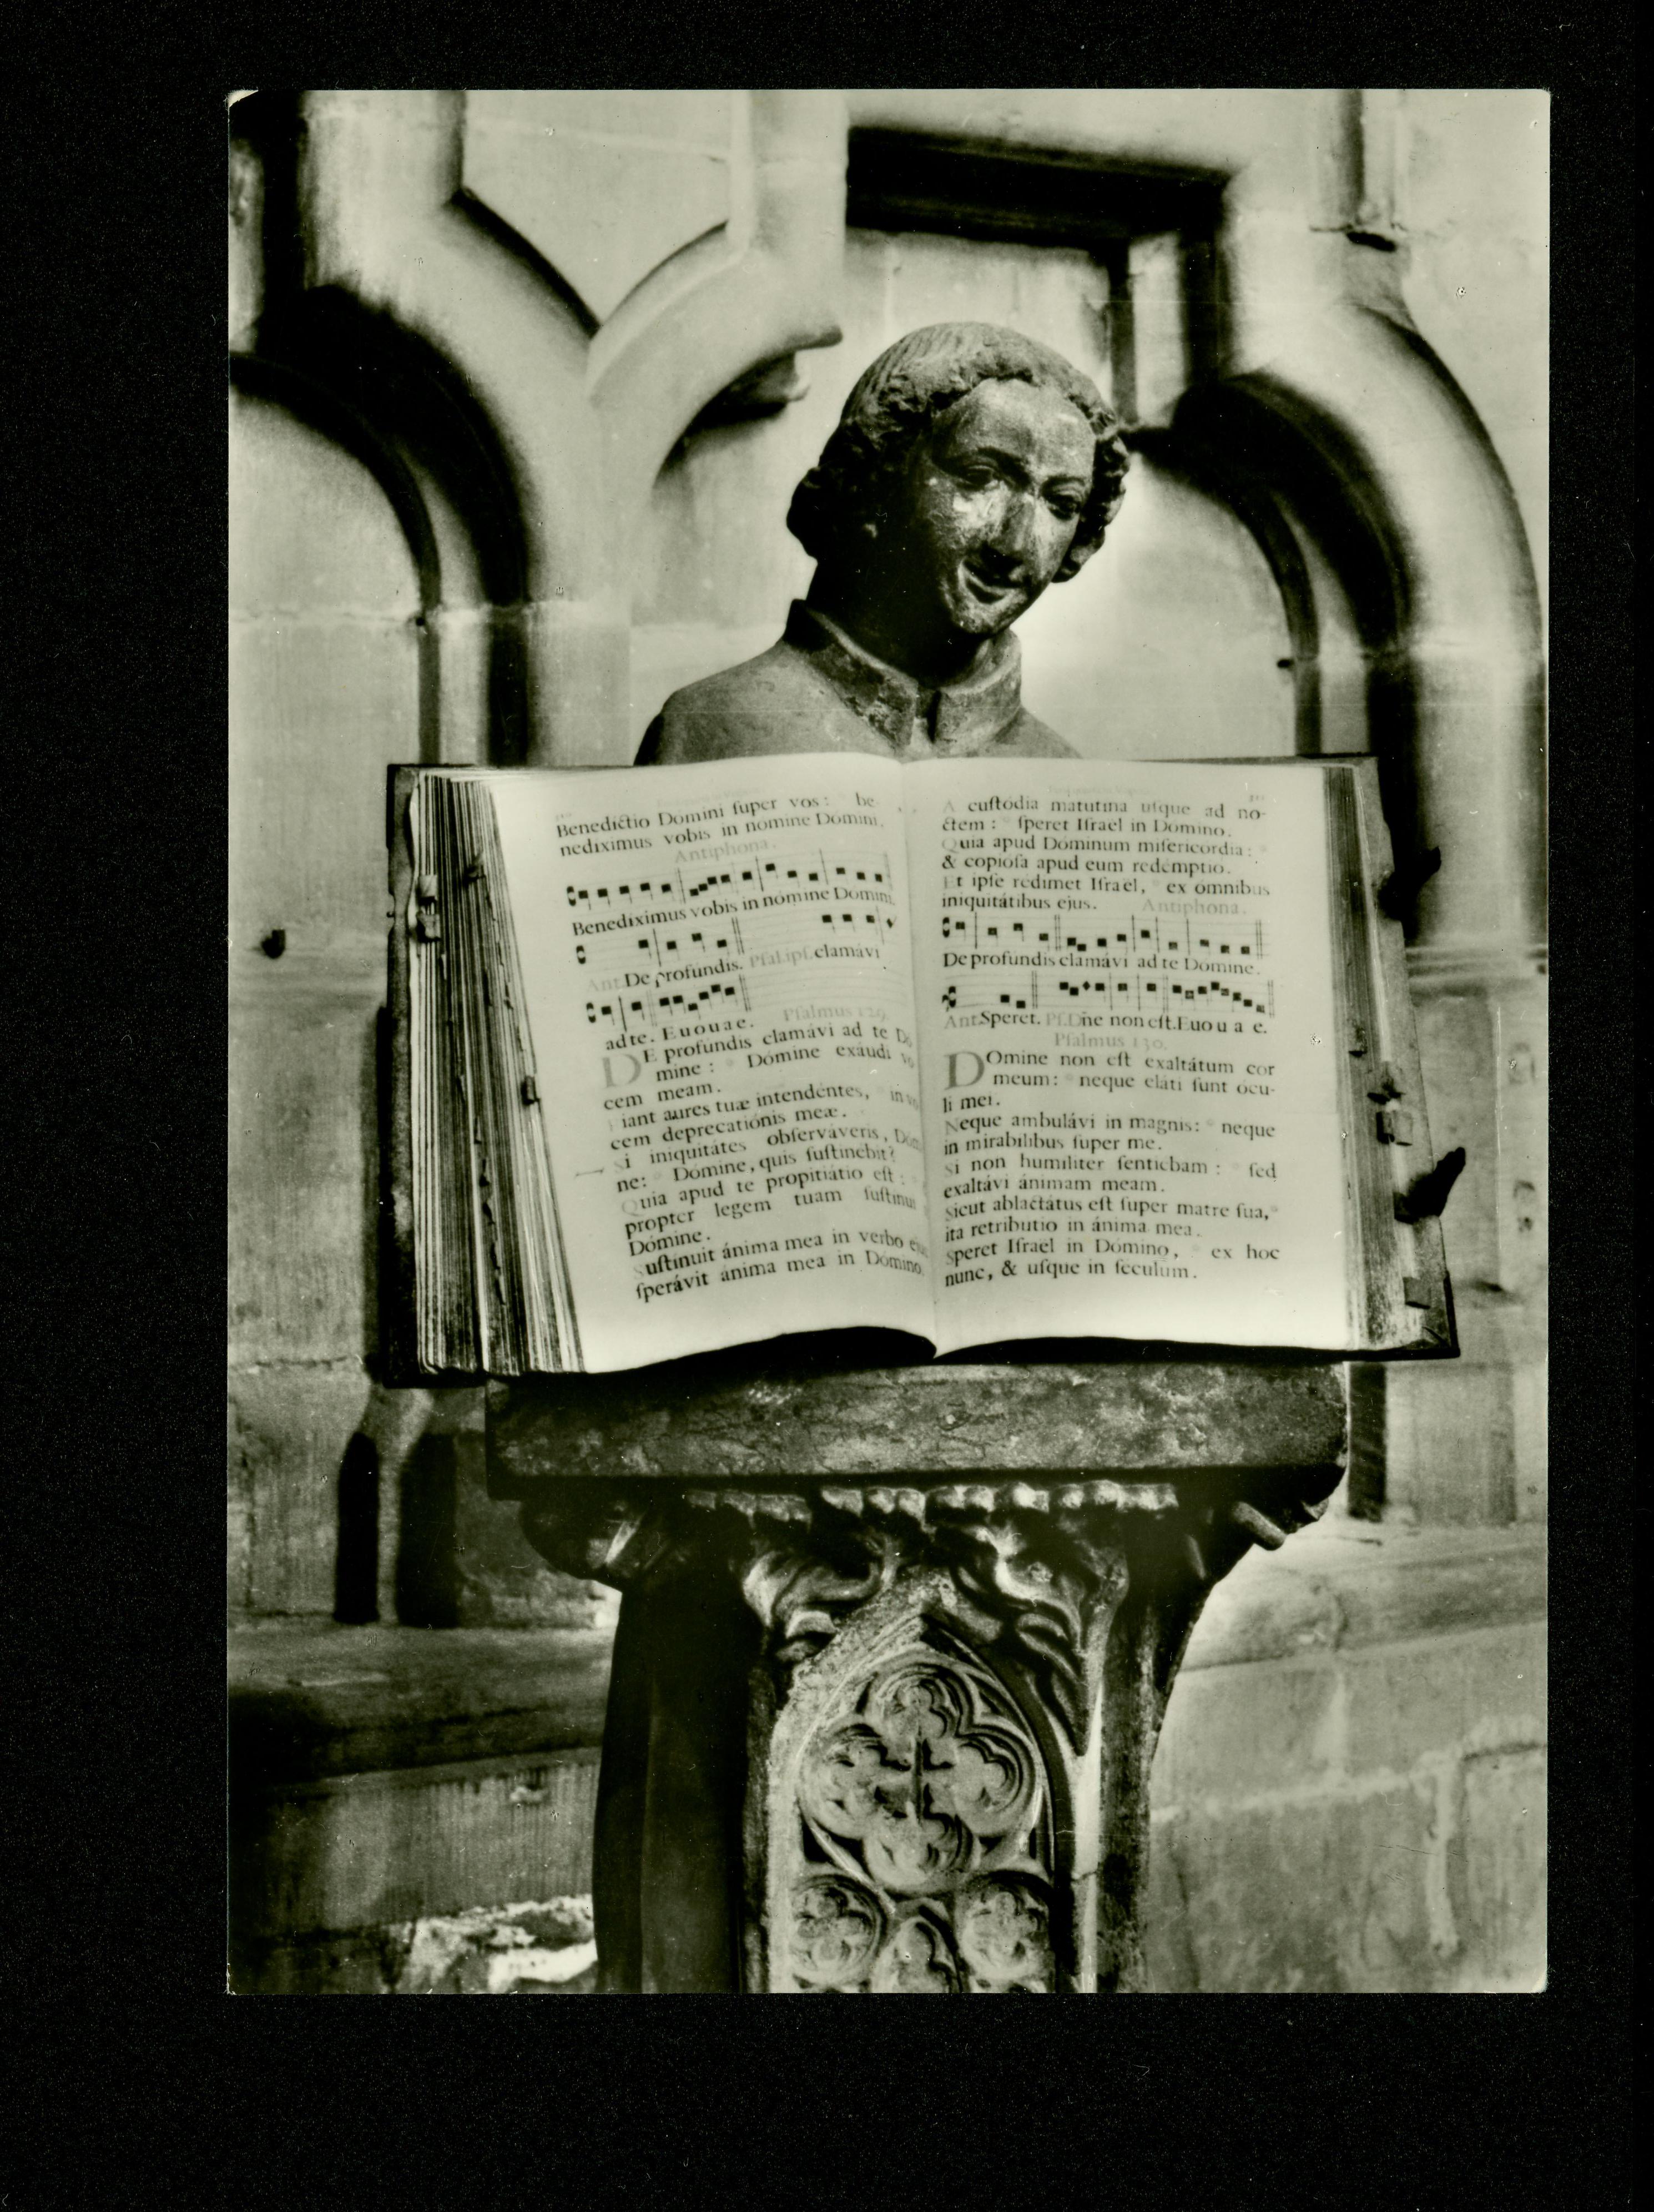 Benedictio Domini ſuper vos: be-
nediximus vobis in nomine Domini.
Antiphona.
Benediximus vobis in nomine Domini.
Ant. De profundis. Pſal. ipſ. clamávi
ad te. E u o u a e.
Pſalmus 129.
DE profundis clamávi ad te Dó
mine: * Dómine exáudi vo
cem meam.
Fiant aures tuæ intendéntes, * in vo
cem deprecatiónis meæ.
Si iniquitátes obſerváveris, Dómi
ne: * Dómine, quis ſuſtinébit?
Quia apud te propitiátio eſt: *
propter legem tuam ſuſtinui
Dómine.
Suſtinuit ánima mea in verbo ejus
ſperávit ánima mea in Dómino.
A cuſtódia matutína uſque ad no-
ctem: * ſperet Iſrael in Dómino.
Quia apud Dóminum miſericórdia: *
& copióſa apud eum redémptio.
Et ipſe rédimet Iſrael, * ex ómnibus
iniquitátibus ejus.
Antiphona.
De profundis clamávi ad te Dómine.
Ant. Speret. Pſ. Dñe non eſt. Euou a e.
Pſalmus 130.
DOmine non eſt exaltátum cor
meum: * neque eláti ſunt ócu-
li mei.
Neque ambulávi in magnis: * neque
in mirabílibus ſuper me.
Si non humíliter ſentiébam: * ſed
exaltávi ánimam meam.
Sicut ablactátus eſt ſuper matre ſua, *
ita retribútio in ánima mea.
Speret Iſrael in Dómino, * ex hoc
nunc, & uſque in ſéculum.